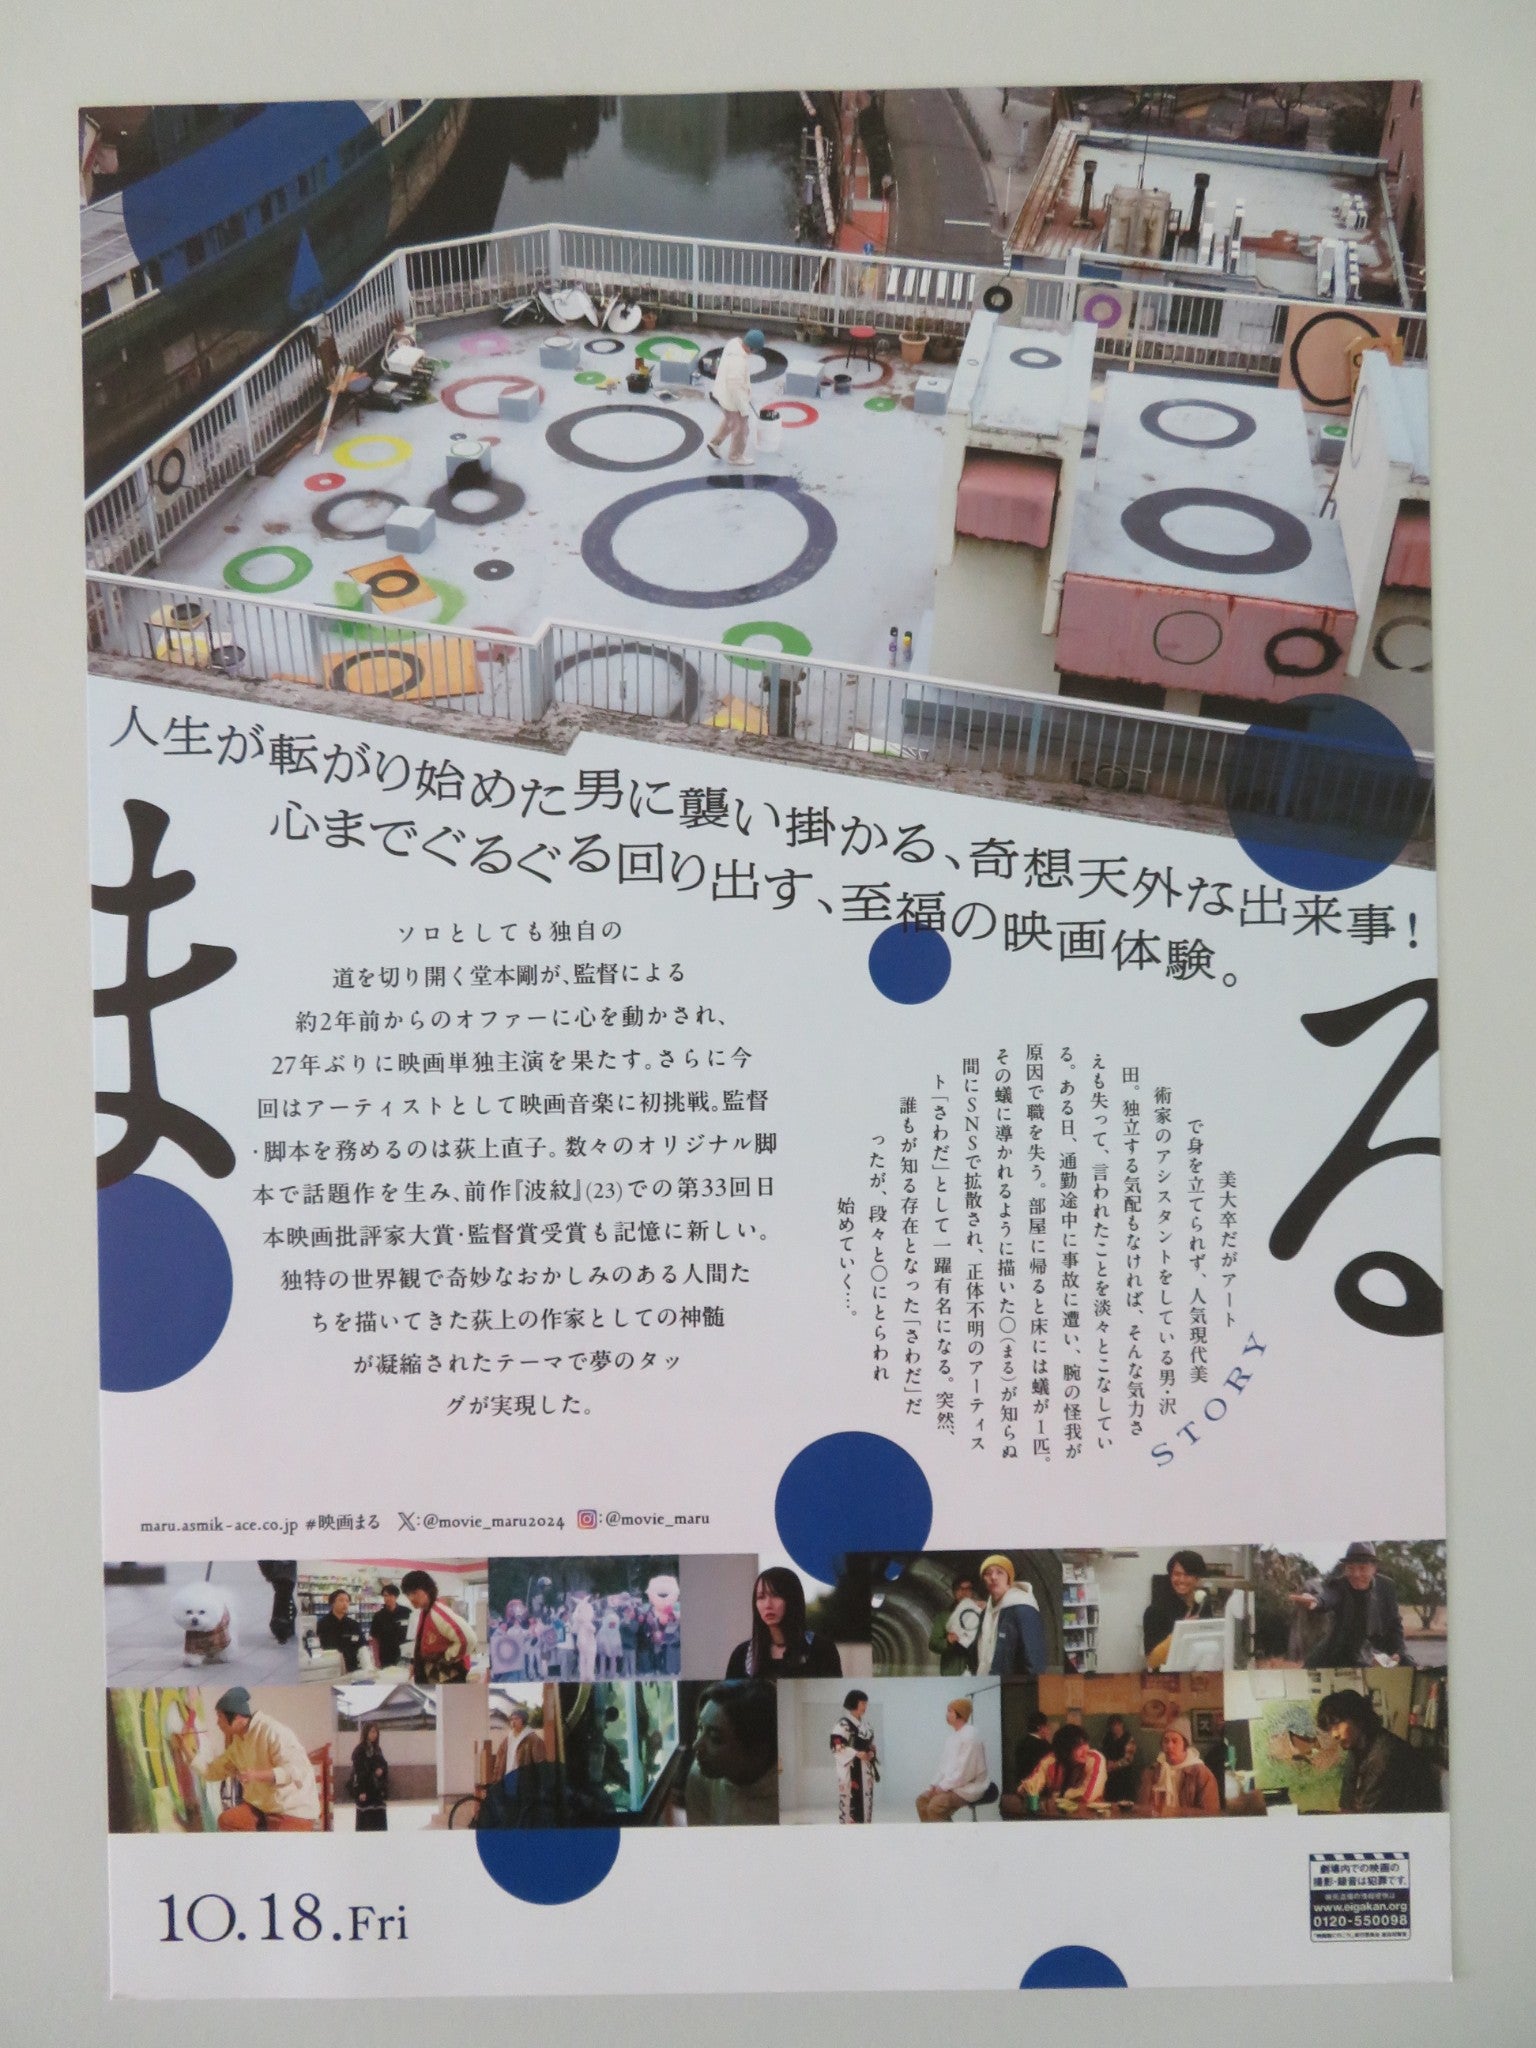 人生が転がり始めた男に襲い掛かる、奇想天外な出来事!
心までぐるぐる回り出す、至福の映画体験。
まる
ソロとしても独自の
道を切り開く堂本剛が、監督による
約2年前からのオファーに心を動かされ、
27年ぶりに映画単独主演を果たす。さらに今
回はアーティストとして映画音楽に初挑戦。監督
・脚本を務めるのは荻上直子。数々のオリジナル脚
本で話題作を生み、前作『波紋』(23)での第33回日
本映画批評家大賞・監督賞受賞も記憶に新しい。
独特の世界観で奇妙なおかしみのある人間た
ちを描いてきた荻上の作家としての神髄
が凝縮されたテーマで夢のタッ
グが実現した。
STORY
美大卒だがアート
で身を立てられず、人気現代美
術家のアシスタントをしている男・沢
田。独立する気配もなければ、そんな気力さ
えも失って、言われたことを淡々とこなしてい
る。ある日、通勤途中に事故に遭い、腕の怪我が
原因で職を失う。部屋に帰ると床には蟻が1匹。
その蟻に導かれるように描いた〇(まる)が知らぬ
間にSNSで拡散され、正体不明のアーティス
ト「さわだ」として一躍有名になる。突然、
誰もが知る存在となった「さわだ」だ
ったが、段々と〇にとらわれ
始めていく…。
maru.asmik-ace.co.jp #映画まる X:@movie_maru2024 :@movie_maru
10.18.Fri
劇場内での映画の
撮影・録音は犯罪です。
www.eigakan.org
0120-550098